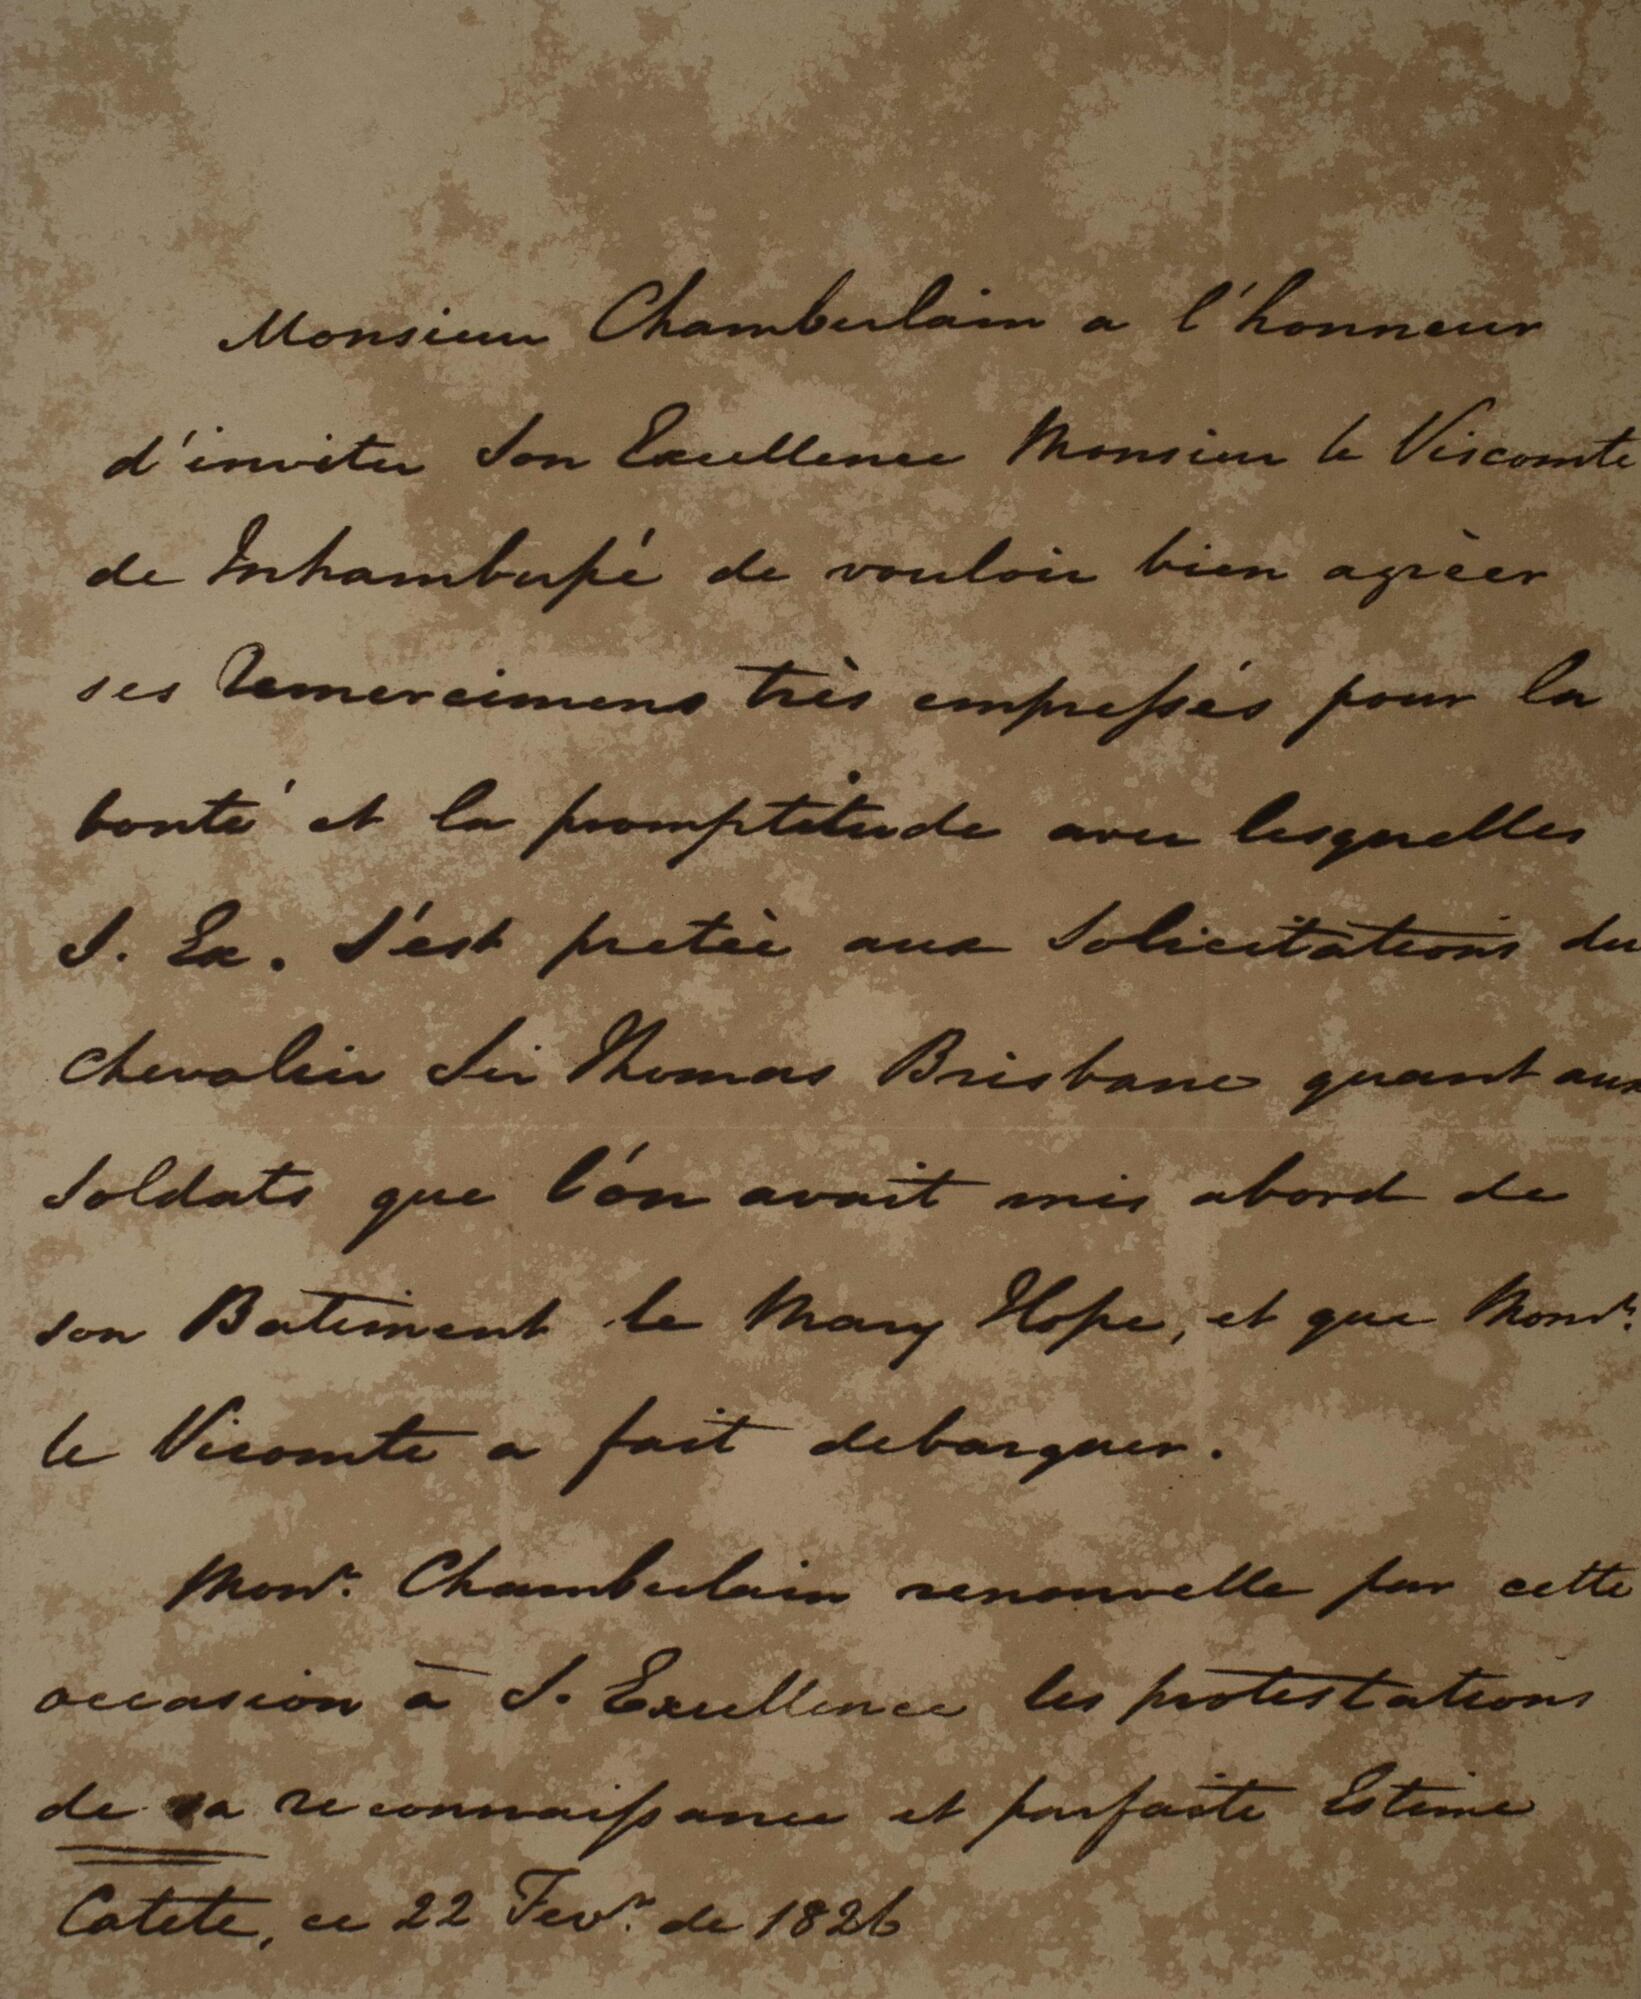 Monsieur Chamberlain a l'honneur
d'inviter Son Excellence Monsieur le Viscomte
de Inhambupé de vouloir bien agrèer
ses Remercimens très empressés pour la
bonté et la promptitude avec lesquelles
S. Ex. S'est pretèe aux Solicitations du
Chevalier Sir Thomas Brisbane quant aux
Soldats que l'on avait mis abord de
son Batiment le Mary Hope, et que Monsr.
le Vicomte a fait debarquer.
Monsr. Chamberlain renouvelle par cette
occasion à S. Excellence les protestations
de sa reconnaissance et parfaite Estime
Catete, ce 22 Fevr. de 1826